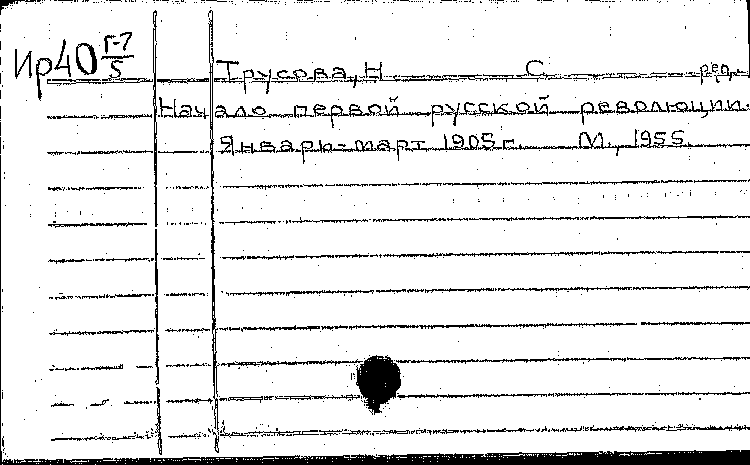 Ир40 Г-7/5
Трусова, Н С ред.
Начало первой русской революции.
Январь-март 1905 г. М., 1955.